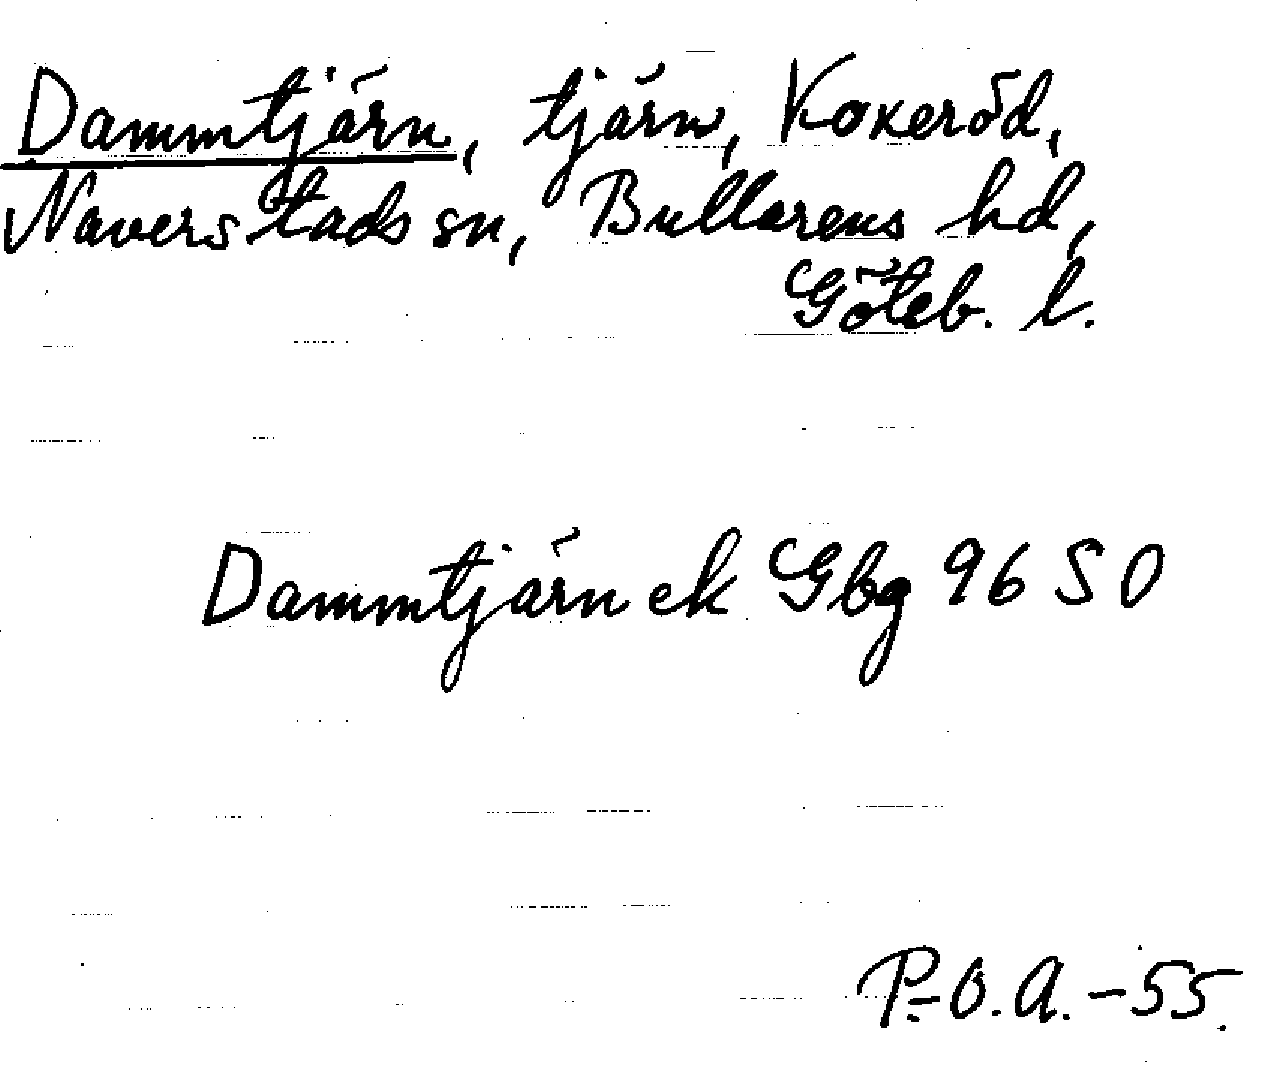 Dammtjärn, tjärn, Kokeröd,
Naverstads sn, Bullarens hd,
Göteb. l.
Dammtjärn ek Gbg 96 SO
P.-O.A. -55.